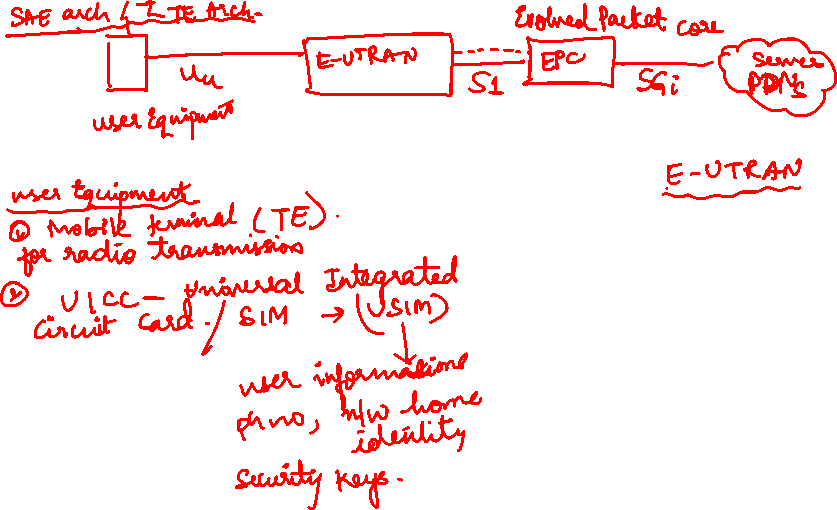 SAE arch / LTE Arch.
Evolved Packet core
E-UTRAN
EPC
Server
PDNs
Uu
S1
SGi
user Equipment
E-UTRAN
user Equipment
① Mobile terminal (TE).
for radio transmission
② UICC - Universal Integrated
Circuit Card. SIM → (USIM)
user informations
ph no, n/w home
identity
Security keys.